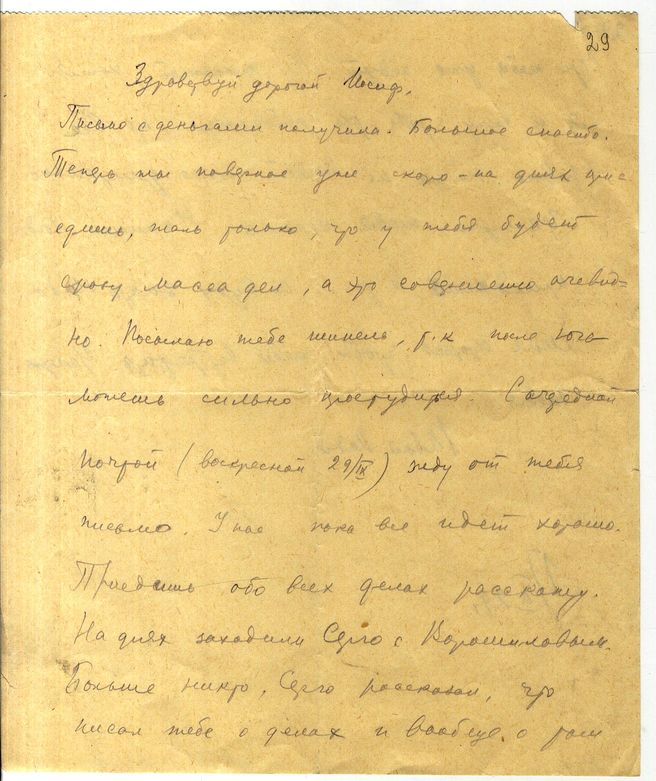 29
Здравствуй дорогой Иосиф.
Письмо с деньгами получила. Большое спасибо.
Теперь ты наверное уже скоро - на днях прие
едишь, жаль только, что у тебя будет
сразу масса дел, а это совершенно очевид=
но. Посылаю тебе шинель, т.к после юга
можешь сильно простудится. С очередной
почтой (воскресной 29/IX) жду от тебя
письмо. У нас пока все идет хорошо.
Приедешь обо всех делах расскажу.
На днях заходили Серго с Ворошиловым.
Больше никто. Серго рассказал, что
писал тебе о делах и вообще о том